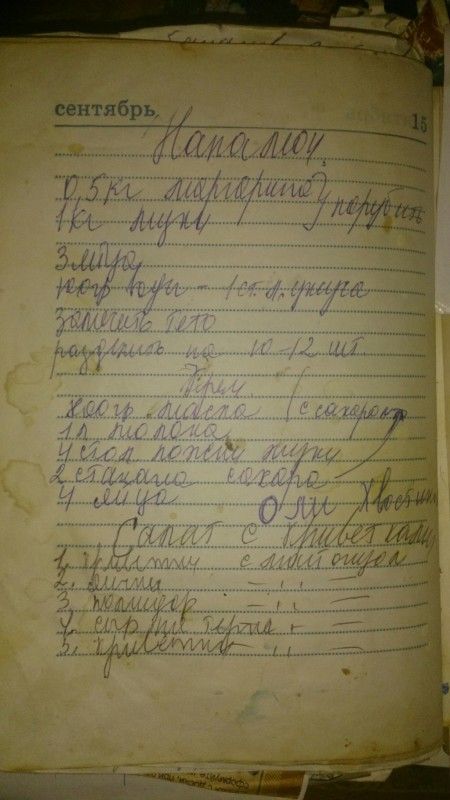 сентябрь 15
Напалеон
0,5 кг маргарина } порубить
1 кг муки
3 яйца
100гр воды - 1 ст. л. уксуса
Замесить тесто
разделить на 10-12 шт.
Крем
400гр масла (с сахаром
1л молока
4 стол ложки муки
2 стакана сахара
4 яйца Оли
Салат с креветками
1. с майонезом
2. яички - ,, -
3. помидор - ,, -
4. сыр на терке + -
5. креветки - ,, -